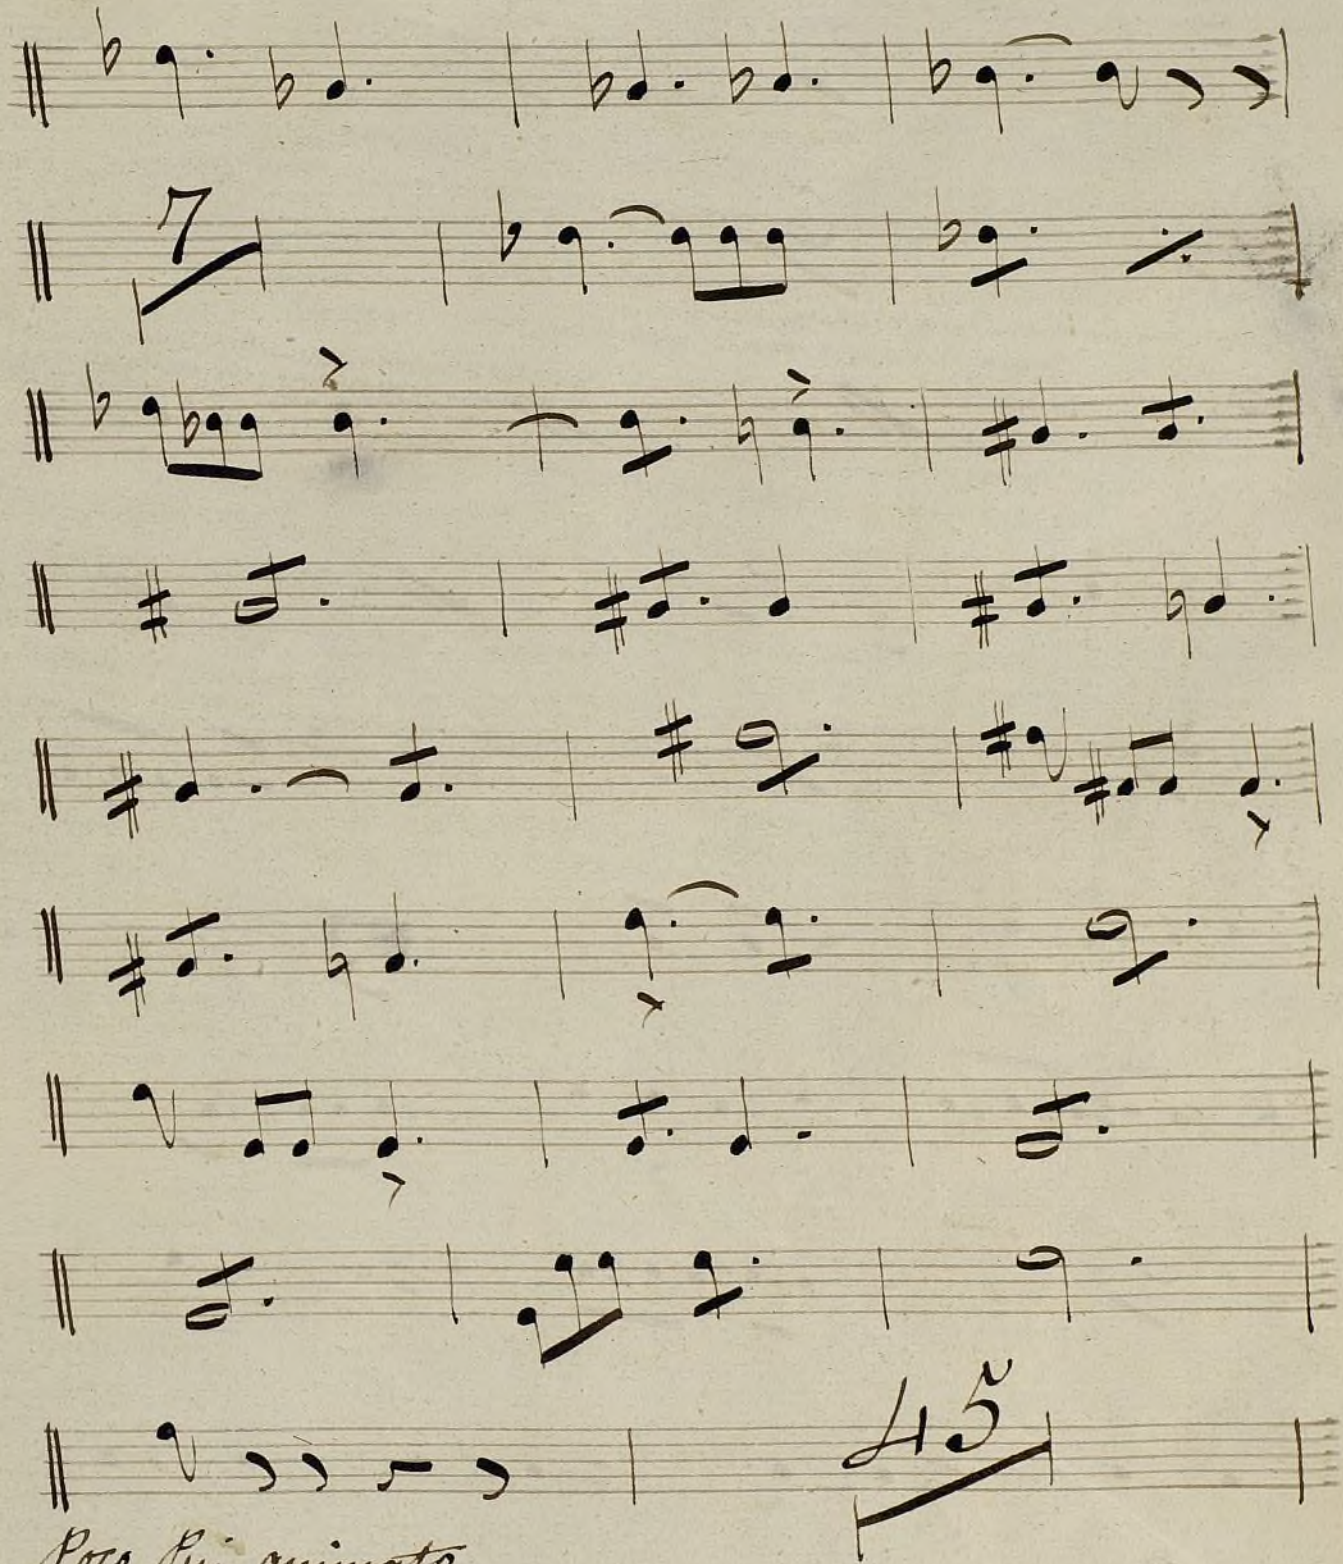 7
45
Poco Piu animato